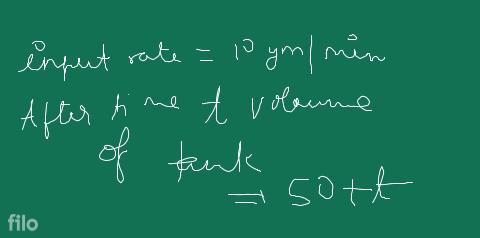 input rate = 10 gm/min
After time t volume
of tank
= 50+t
filo